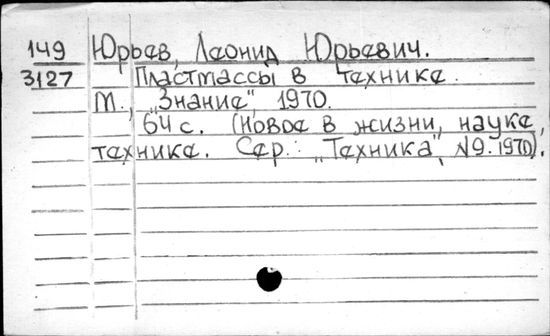 149 Юрьев, Леонид Юрьевич.
3127 Пластмассы в технике.
М., „Знание", 1970.
64 с. (Новое в жизни, науке,
технике. Сер.: „Техника", №9. 1970).